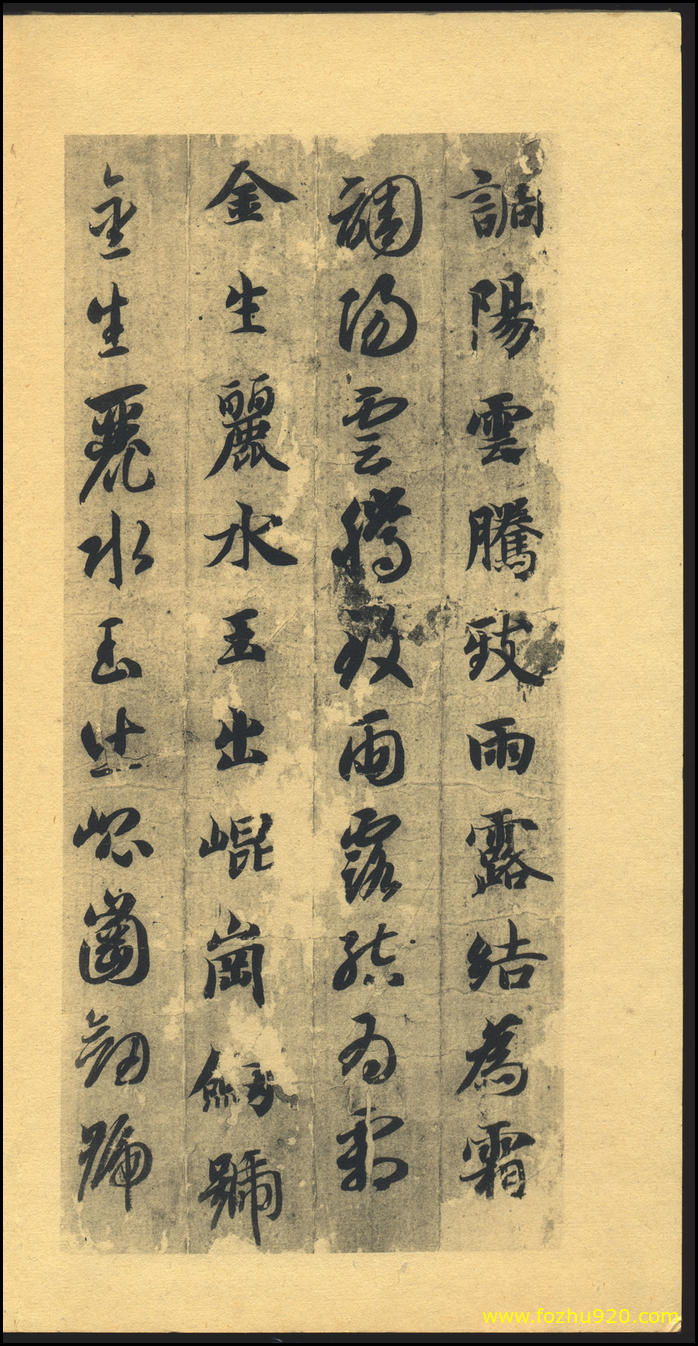 調陽雲騰致雨露結為霜
調陽雲騰致雨露結為霜
金生麗水玉出崐崗劔號
金生麗水玉出崐崗劔號
www.fozhu920.com